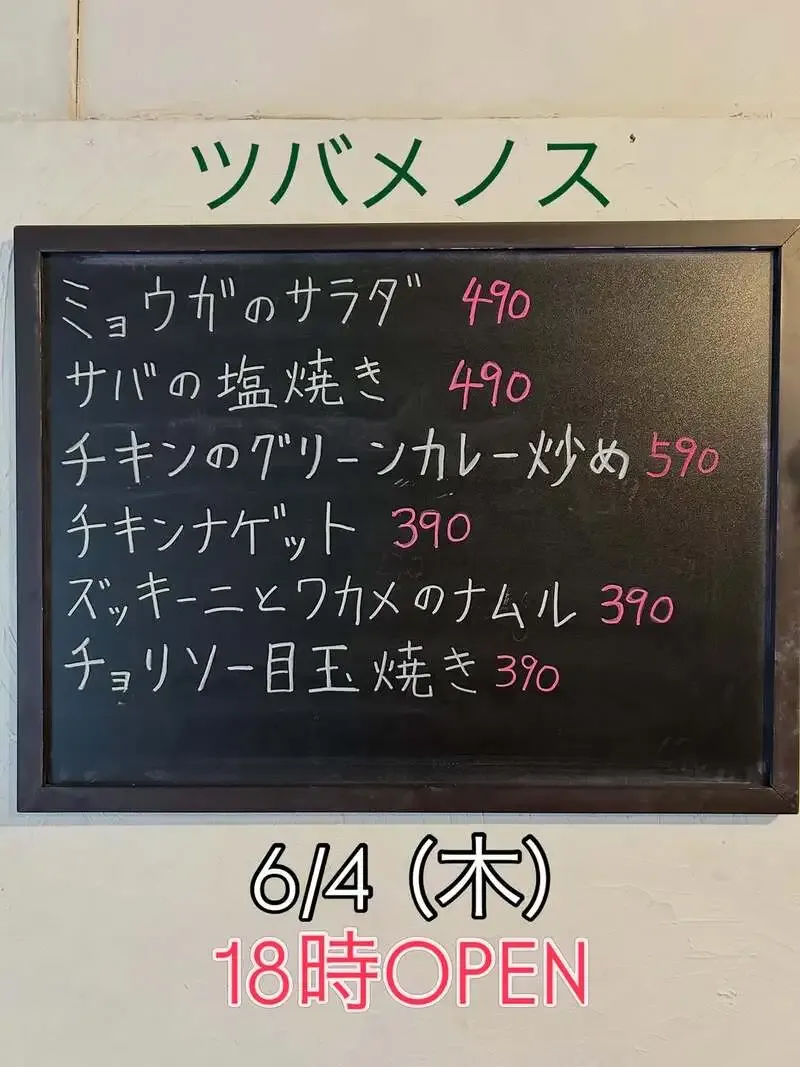 ツバメノス
ミョウガのサラダ 490
サバの塩焼き 490
チキンのグリーンカレー炒め 590
チキンナゲット 390
ズッキーニとワカメのナムル 390
チョリソー目玉焼き 390
6/4 (木)
18時OPEN